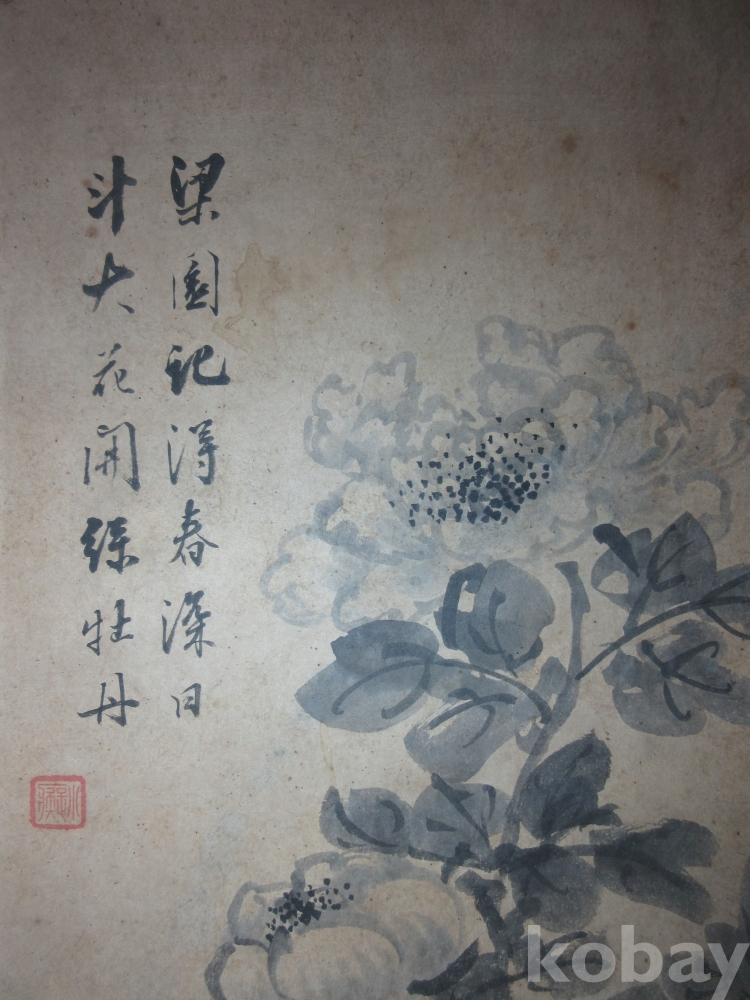 梁園記得春深日
斗大花開綠牡丹
kobay